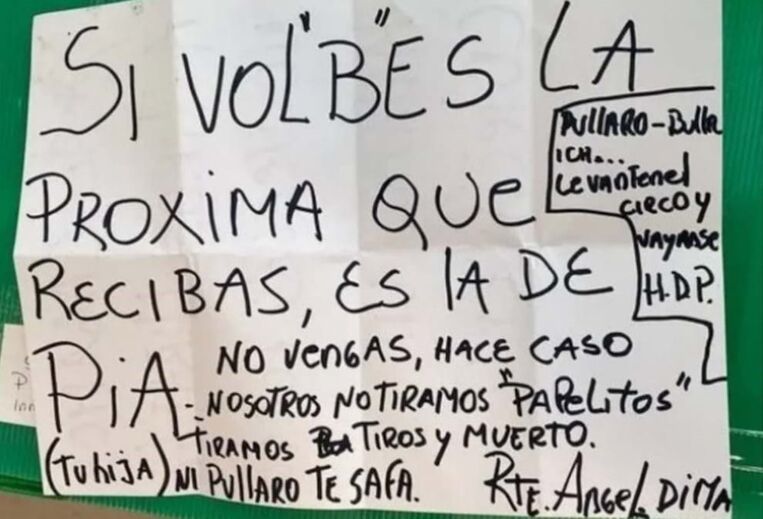 SI VOL"B"ES LA
PROXIMA QUE
RECIBAS, ES LA DE
PIA
(TU hijA)
NO VENGAS, HACE CASO
NOSOTROS NO TIRAMOS "PAPELITOS"
TIRAMOS TIROS Y MUERTO.
NI PULLARO TE SAFA.
RTE. ANGEL DIMA
PULLARO - Bullr
ICH...
LEVANTEN el
CIRCO Y
VAYANSE
H.D.P.